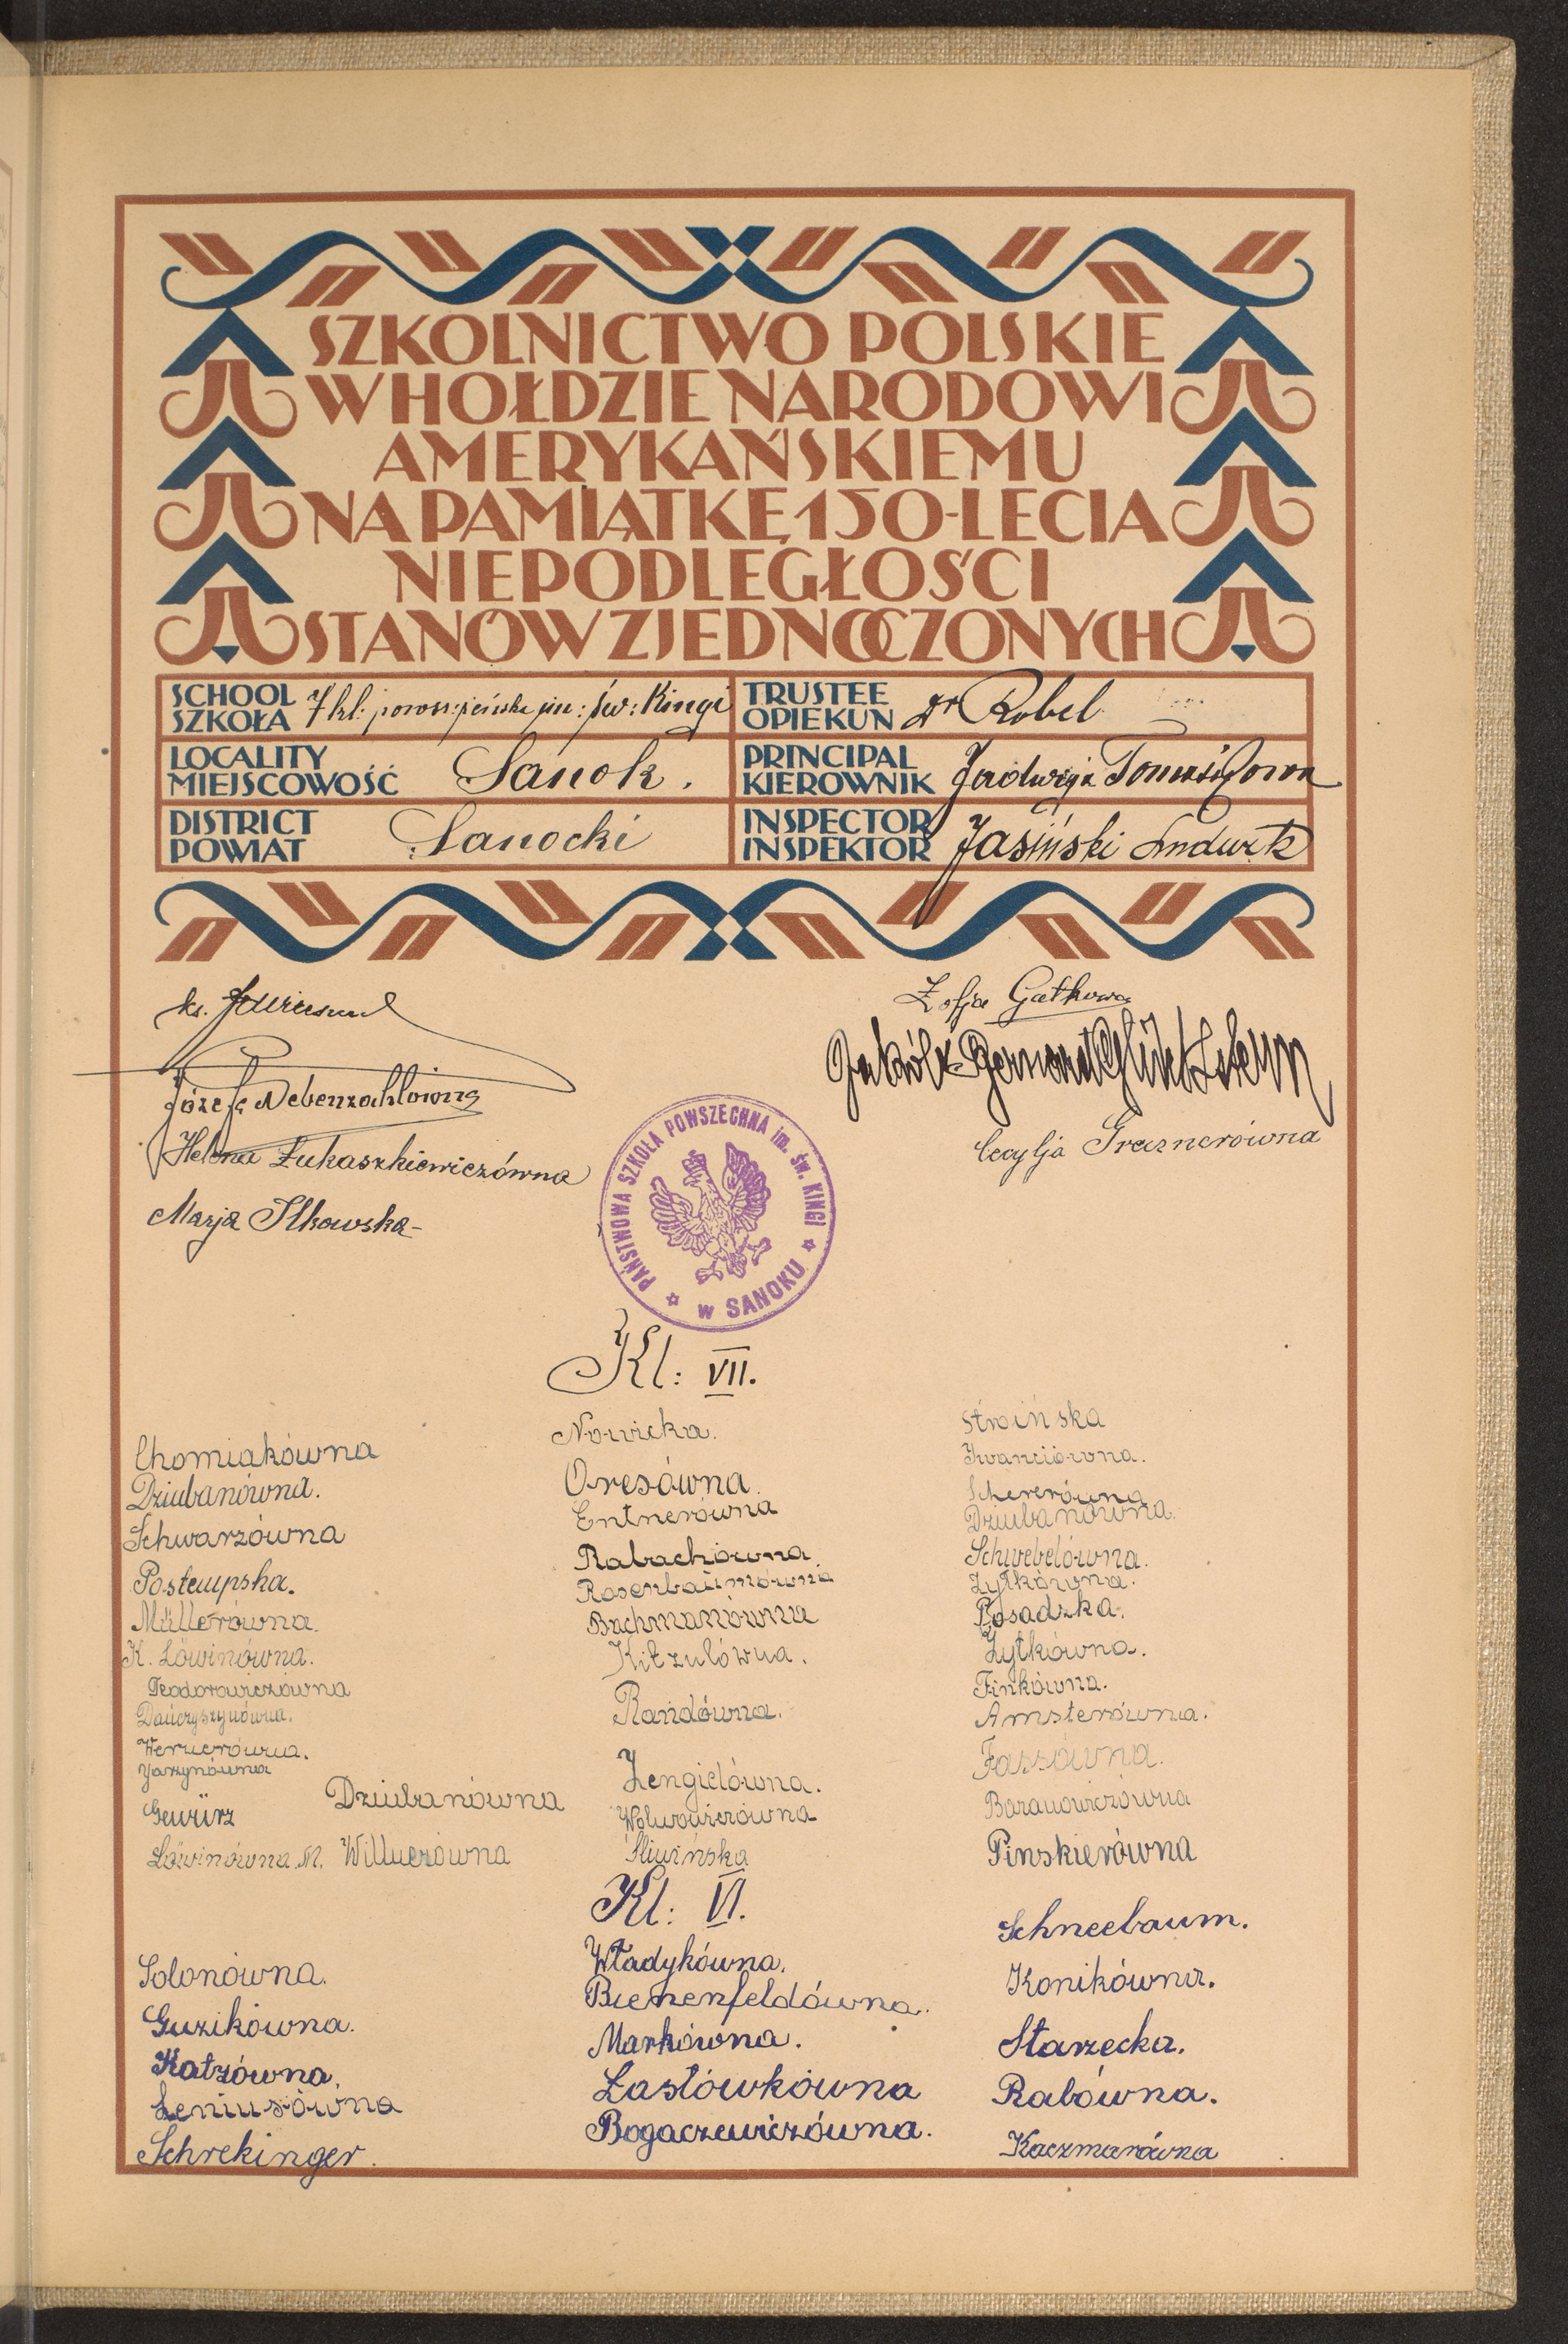 SZKOLNICTWO POLSKIE
W HOŁDZIE NARODOWI
AMERYKAŃSKIEMU
NA PAMIĄTKĘ 150-LECIA
NIEPODLEGŁOŚCI
STANÓW ZJEDNOCZONYCH
SCHOOL
SZKOŁA 7 kl: żeńska im: św: Kingi
TRUSTEE
OPIEKUN Dr Robel
LOCALITY
MIEJSCOWOŚĆ Sanok.
PRINCIPAL
KIEROWNIK Jadwiga
DISTRICT
POWIAT Sanocki
INSPECTOR
INSPEKTOR Jasiński
ks.
Józefa Nebenzahlówna
Helena Łukaszkiewiczówna
Marja Ilkowska
Zofja Gatkowa
Jakób Bernard
Cecylja Graznerówna
PAŃSTWOWA SZKOŁA POWSZECHNA im. św. KINGI
w SANOKU
Kl: VII.
Chomiakówna
Dziubanówna.
Schwarzówna
Postempska.
Müllerówna.
K. Löwinówna.
Teodorowiczówna
Dańczyszynówna.
Wernerówna.
Jarzynówna
Gewürz
Löwinówna M.
Dziubanówna
Willnerówna
Nowicka.
Oresówna.
Entnerówna
Rabachówna.
Rosenbaumówna
Bachmanówna
Kitzulówna.
Randówna.
Zengielówna.
Wolwowiczówna
Śliwińska
Stroińska
Iwanciówna.
Schererówna
Dziubanówna.
Schwebelówna.
Żytkówna.
Posadzka.
Żytkówna.
Finkówna.
Amsterówna.
Fassówna.
Baranowiczówna
Pinskierówna
Kl: VI.
Solonówna.
Guzikówna.
Katzówna.
Leniusówna
Schrekinger.
Władykówna.
Bienenfeldówna.
Markówna.
Łastówkówna
Bogaczewiczówna.
Schneebaum.
Konikówna.
Starzecka.
Rabówna.
Kaczmarówna